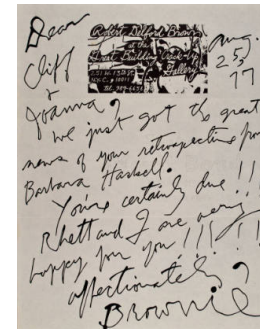 Dear
Cliff
&
Joanna,
Robert Delford Brown
at the
Great Building Crack-up
Gallery
251 W. 13th St.
N.Y.C. 10011
Aug.
25,
77
We just got the great
news of your retrospective from
Barbara Haskell.
Youre certainly due!!
Rhett and I are very
happy for you!!!!!!
affectionately,
Brownie